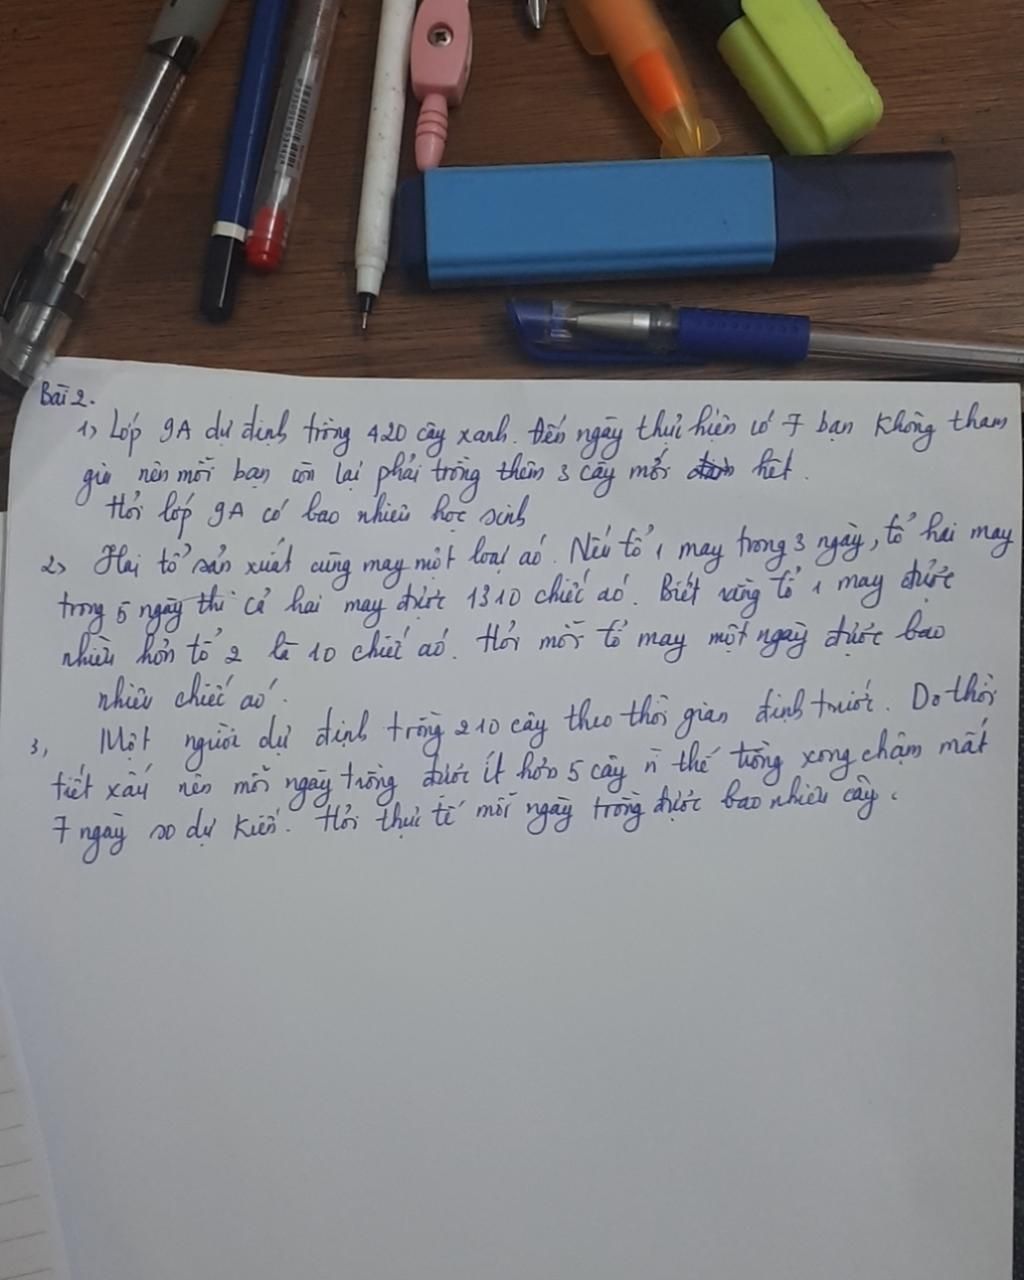 Bài 2.
1, Lớp 9A dự định trồng 420 cây xanh. Đến ngày thực hiện có 7 bạn không tham
gia nên mỗi bạn còn lại phải trồng thêm 3 cây mới hết.
Hỏi lớp 9A có bao nhiêu học sinh
2, Hai tổ sản xuất cùng may một loại áo. Nếu tổ 1 may trong 3 ngày, tổ hai may
trong 5 ngày thì cả hai may được 1310 chiếc áo. Biết rằng tổ 1 may được
nhiều hơn tổ 2 là 10 chiếc áo. Hỏi mỗi tổ may một ngày được bao
nhiêu chiếc áo.
3, Một người dự định trồng 210 cây theo thời gian định trước. Do thời
tiết xấu nên mỗi ngày trồng được ít hơn 5 cây vì thế trồng xong chậm mất
7 ngày so dự kiến. Hỏi thực tế mỗi ngày trồng được bao nhiêu cây.